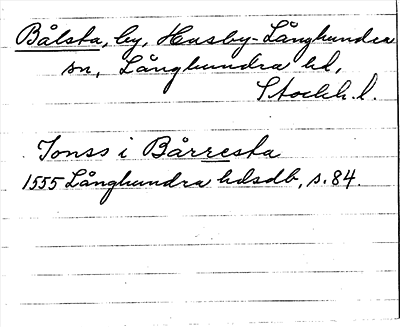 Bålsta, by, Husby-Långhundra
sn, Långhundra hd,
Stockh. l.
Jonss i Bårresta
1555 Långhundra hdsdb, s. 84.